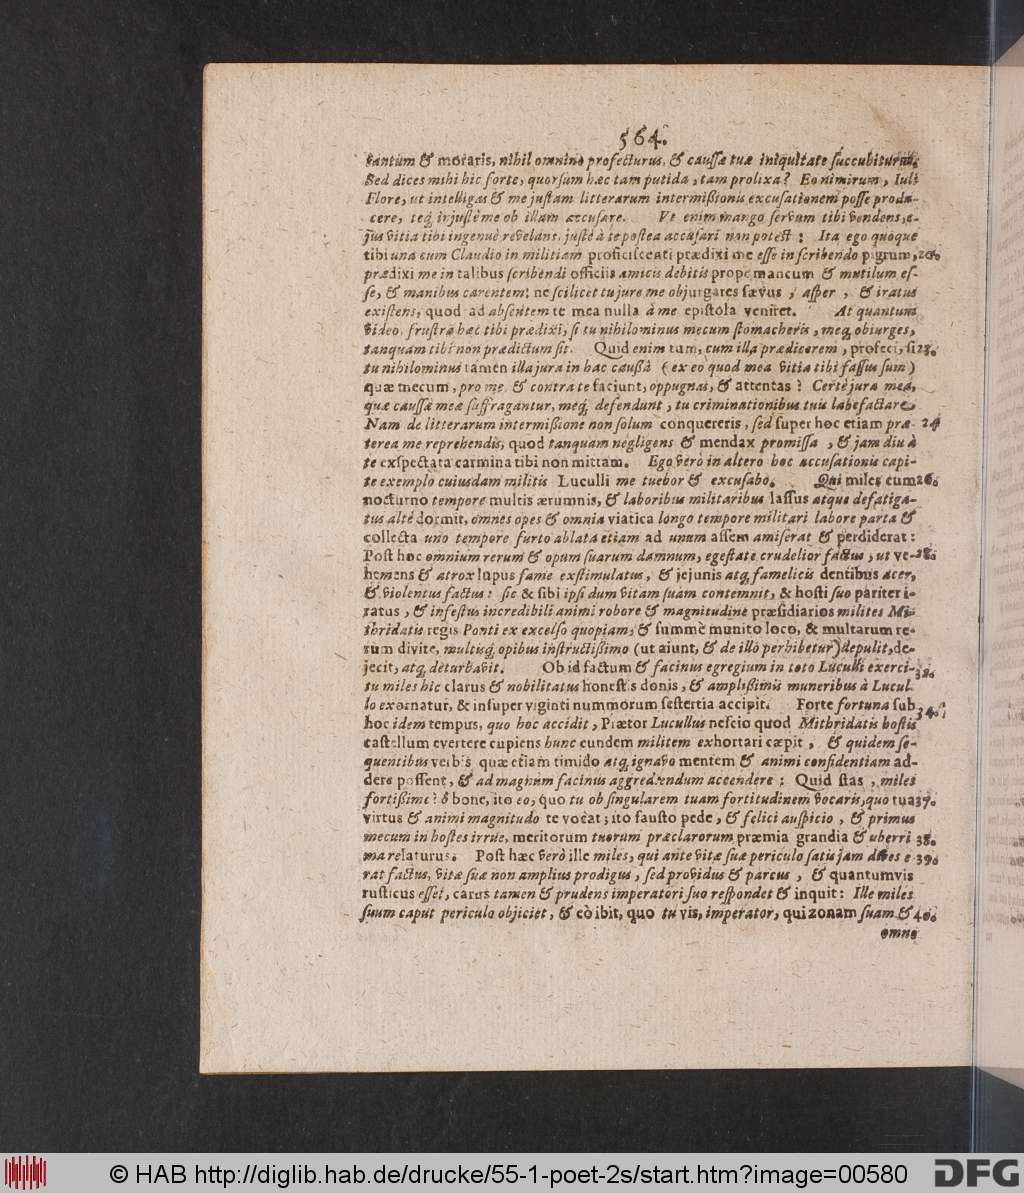 564.
tantùm & moraris, nihil omnino profecturus, & caussæ tuæ iniquitate succubiturus.
Sed dices mihi hic forte, quorsum hæc tam putida, tam prolixa? Eo nimirum, Iuli
Flore, ut intelligas & me justam litterarum intermißionis excusationem posse produ-
cere, teq́; injustè me ob illam accusare. Vt enim mango servum tibi vendens, e-
jus vitia tibi ingenuè revelans, justè à te postea accusari non potest: Ita ego quoque
tibi una cum Claudio in militiam proficiscenti prædixi me esse in scribendo pigrum, 20.
prædixi me in talibus scribendi officiis amicis debitis prope mancum & mutilum es-
se, & manibus carentem: ne scilicet tu jure me objurgares sævus, asper, & iratus
existens, quod ad absentem te mea nulla à me epistola veniret. At quantum
video, frustra hæc tibi prædixi, si tu nihilominus mecum stomacheris, meq́; obiurges,
tanquam tibi non prædictum sit. Quid enim tum, cum illa prædicerem, profeci, si 23.
tu nihilominus tamen illa jura in hac caußa (ex eo quod mea vitia tibi fassus sum)
quæ mecum, pro me & contra te faciunt, oppugnas, & attentas? Certè jura mea,
quæ caussæ meæ suffragantur, meq́; defendunt, tu criminationibus tuis labefactare.
Nam de litterarum intermißione non solum conquereris, sed super hoc etiam præ- 24
terea me reprehendis, quod tanquam negligens & mendax promissa, & jam diu à
te exspectata carmina tibi non mittam. Ego verò in altero hoc accusationis capi-
te exemplo cuiusdam militis Luculli me tuebor & excusabo. Qui miles cum 26.
nocturno tempore multis ærumnis, & laboribus militaribus lassus atque defatiga-
tus altè dormit, omnes opes & omnia viatica longo tempore militari labore parta &
collecta uno tempore furto ablata etiam ad unum assem amiserat & perdiderat:
Post hoc omnium rerum & opum suarum damnum, egestate crudelior factus, ut ve- 28.
hemens & atrox lupus fame exstimulatus, & jejunis atq́; famelicis dentibus acer,
& violentus factus: sic & sibi ipsi dum vitam suam contemnit, & hosti suo pariter i-
ratus, & infestus incredibili animi robore & magnitudine præsidiarios milites Mi-
thridatis regis Ponti ex excelso quopiam, & summè munito loco, & multarum re-
rum divite, multisq́; opibus instructißimo (ut aiunt, & de illo perhibetur) depulit, de-
jecit, atq́; deturbavit. Ob id factum & facinus egregium in toto Luculli exerci-
tu miles hic clarus & nobilitatus honestis donis, & amplißimis muneribus à Lucul-
lo exornatur, & insuper viginti nummorum sestertia accipit. Forte fortuna sub 34.
hoc idem tempus, quo hoc accidit, Prætor Lucullus nescio quod Mithridatis hostis
castellum evertere cupiens hunc eundem militem exhortari cæpit, & quidem se-
quentibus verbis quæ etiam timido atq́; ignavo mentem & animi confidentiam ad-
dere possent, & ad magnum facinus aggrediendum accendere: Quid stas, miles
fortißime? ô bone, ito eo, quo tu ob singularem tuam fortitudinem vocaris, quo tua 37.
virtus & animi magnitudo te vocat; ito fausto pede, & felici auspicio, & primus
mecum in hostes irrue, meritorum tuorum præclarorum præmia grandia & uberri 38.
ma relaturus. Post hæc verò ille miles, qui ante vitæ suæ periculo satis jam dives e- 39.
rat factus, vitæ suæ non amplius prodigus, sed providus & parcus, & quantumvis
rusticus esset, carus tamen & prudens imperatori suo respondet & inquit: Ille miles
suum caput periculo objiciet, & eò ibit, quo tu vis, imperator, qui zonam suam & 40.
omne
© HAB http://diglib.hab.de/drucke/55-1-poet-2s/start.htm?image=00580
DFG